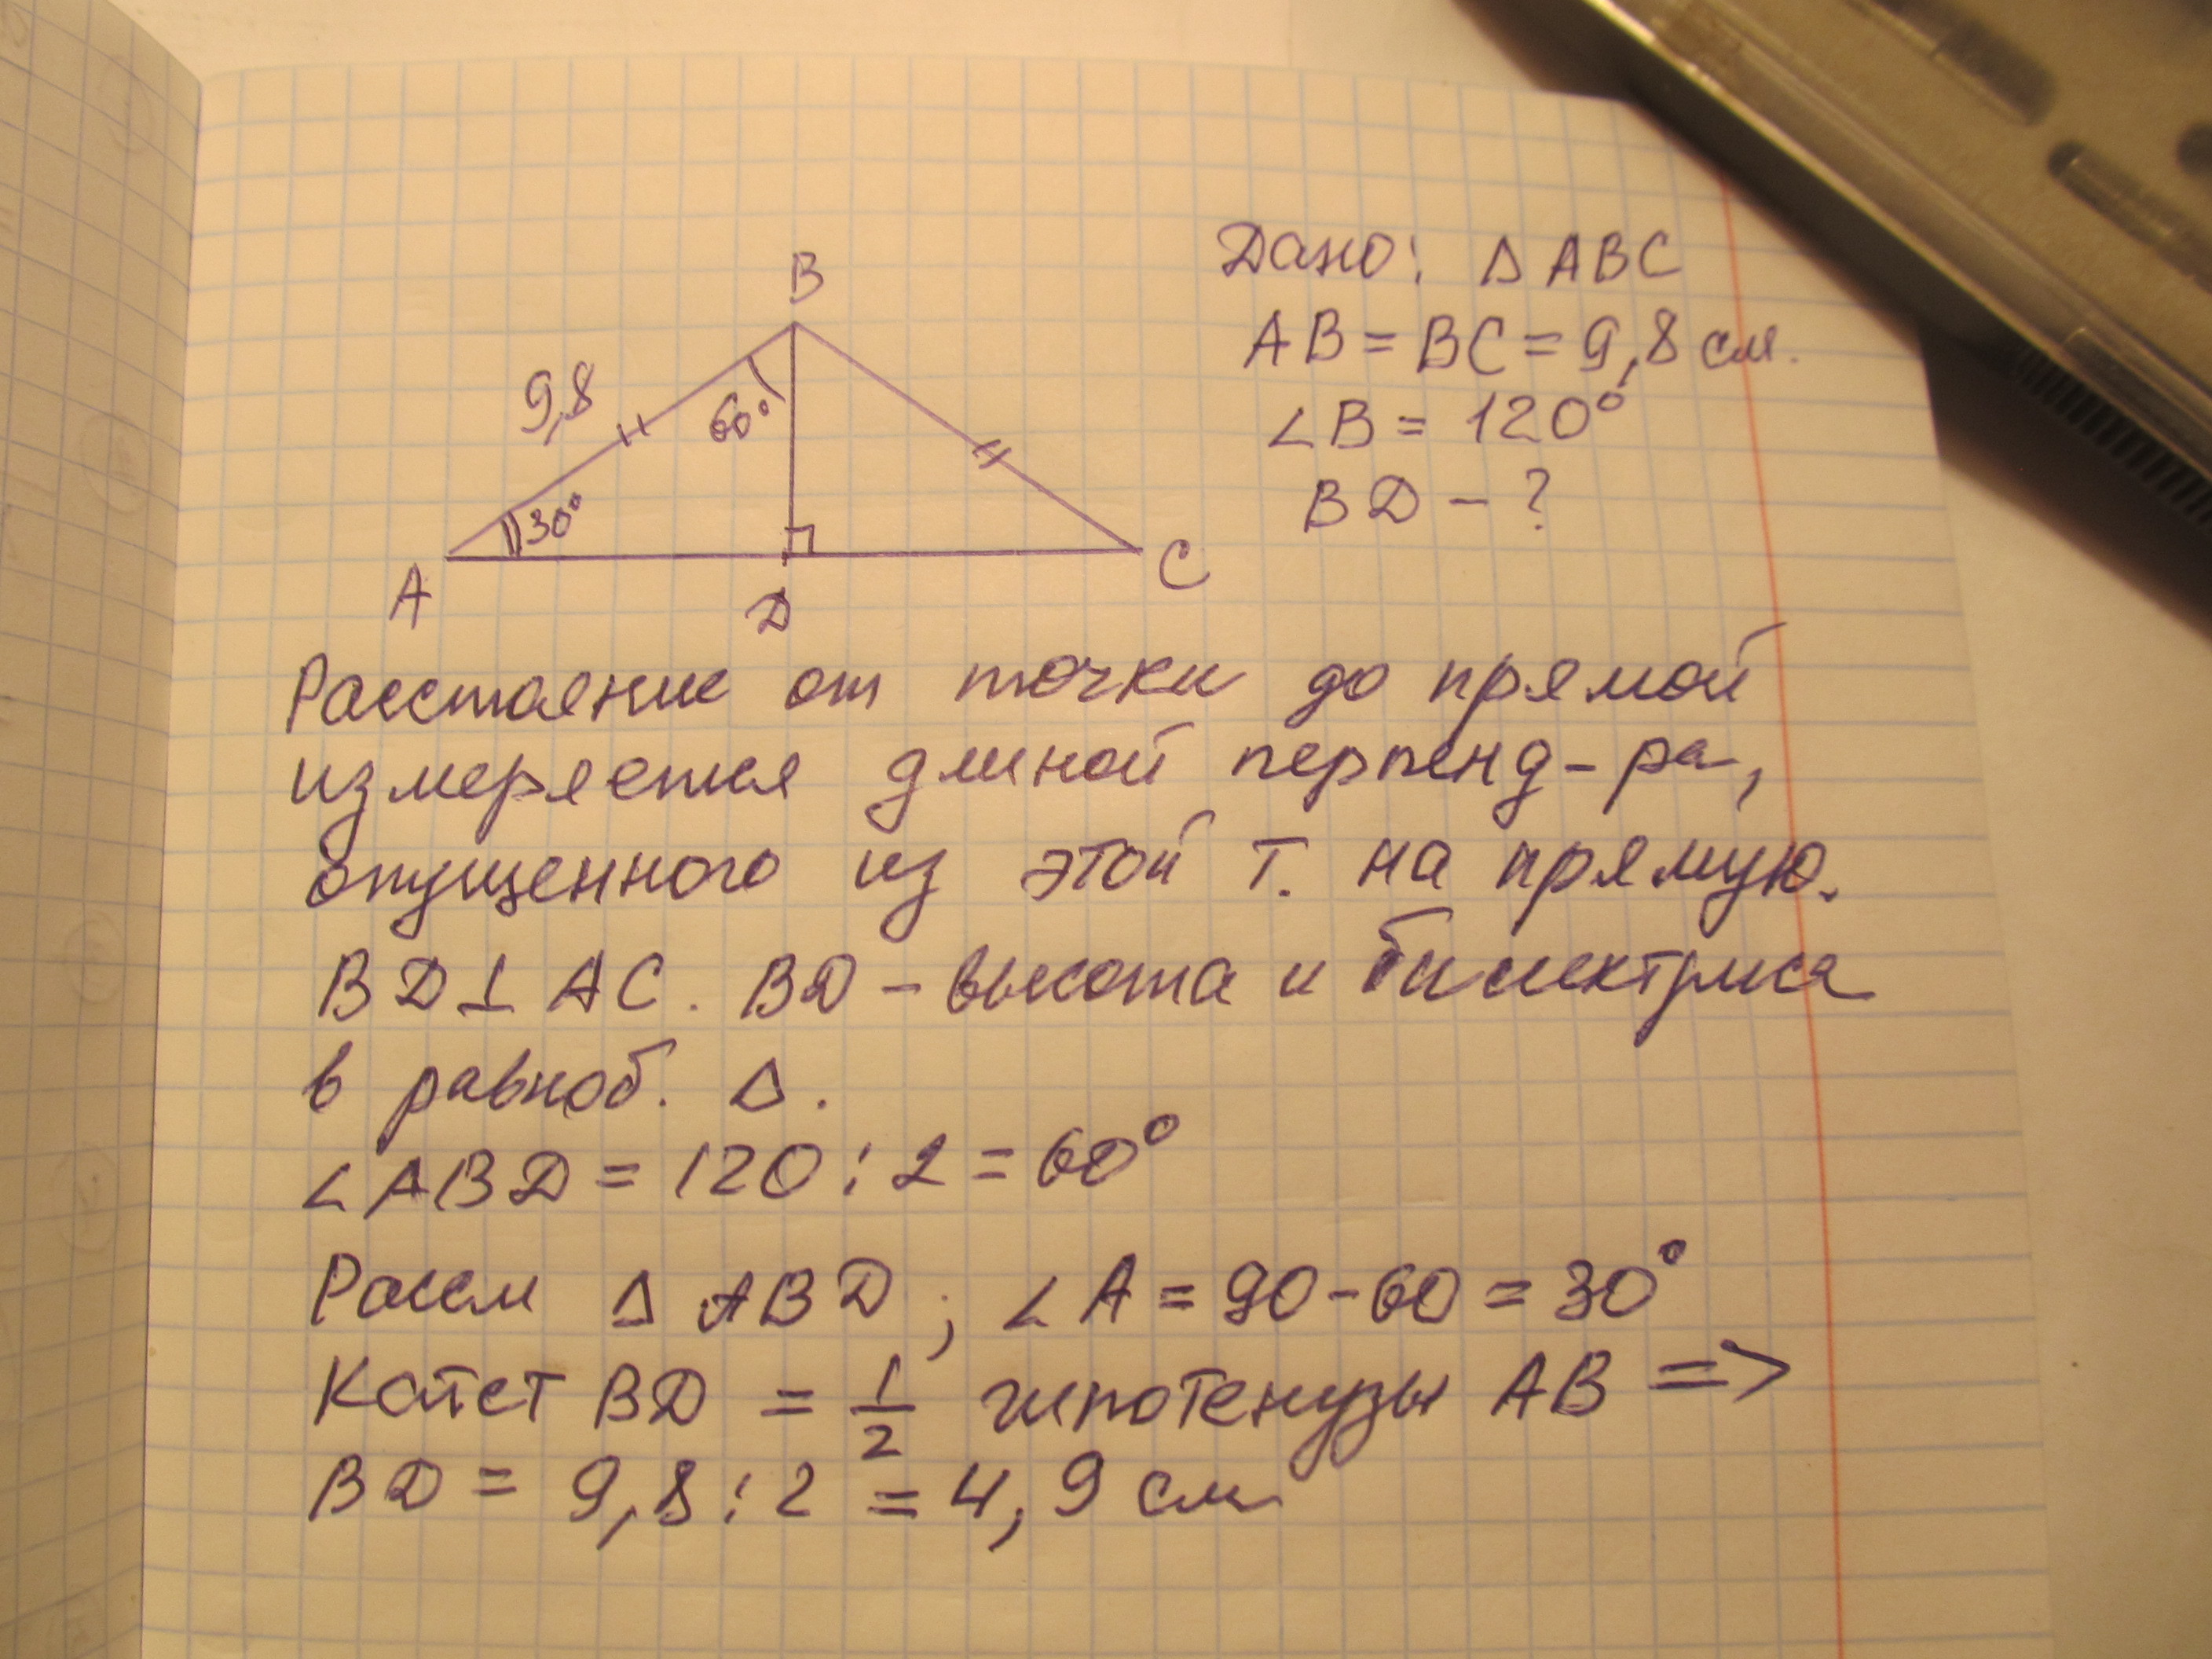 Дано: Δ ABC
AB = BC = 9,8 см.
∠B = 120°
BD – ?
B
9,8
60°
30°
A
D
C
Расстояние от точки до прямой
измеряется длиной перпенд-ра,
опущенного из этой т. на прямую.
BD ⊥ AC. BD – высота и биссектриса
в равноб. Δ.
∠ABD = 120 : 2 = 60°
Рассм Δ ABD ; ∠A = 90 – 60 = 30°
Катет BD = 1/2 гипотенузы AB =>
BD = 9,8 : 2 = 4,9 см